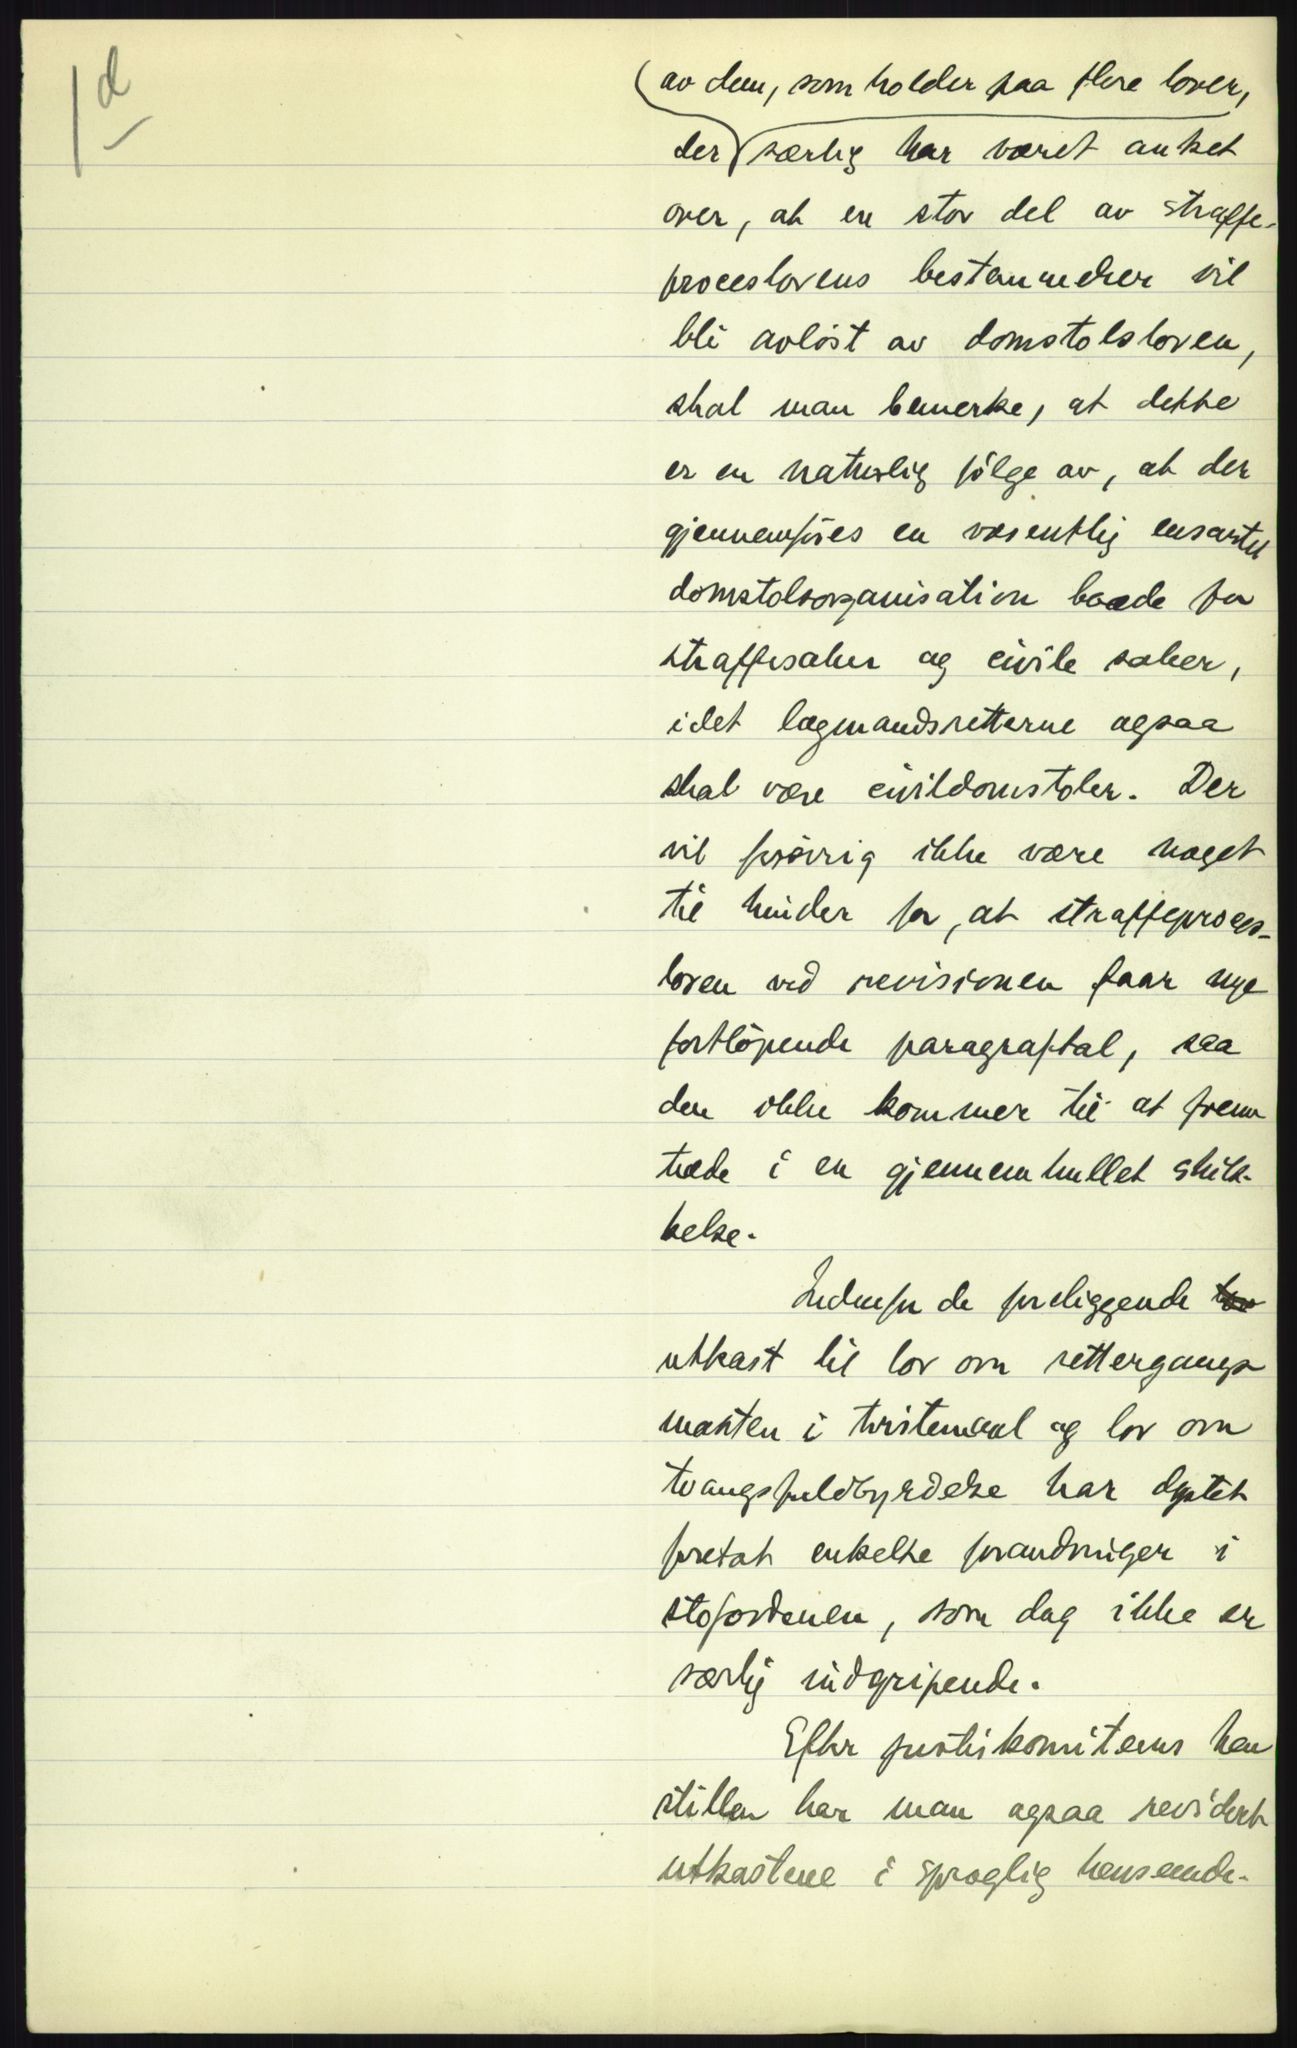 1d
av dem, som holder paa flere lover,
der særlig har været anket
over, at en stor del av straffe-
proceslovens bestemmelser vil
bli avløst av domstolsloven,
skal man bemerke, at dette
er en naturlig følge av, at der
gjennemføres en væsentlig ensartet
domstolsorganisation baade for
straffesaker og civile saker,
idet lagmandsretterne ogsaa
skal være civildomstoler. Der
vil forøvrig ikke være noget
til hinder for, at straffeproces-
loven ved revisionen faar nye
fortløpende paragraftal, saa
den ikke kommer til at frem
træde i en gjennemhullet skik-
kelse.
Indenfor de foreliggende
utkast til lov om rettergangs
maaten i tvistemaal og lov om
tvangsfuldbyrdelse har dptet
foretat enkelte forandringer i
stofordenen, som dog ikke er
særlig indgripende.
Efter justiskomiteens hen
stillen har man ogsaa revidert
utkastene i sproglig henseende.